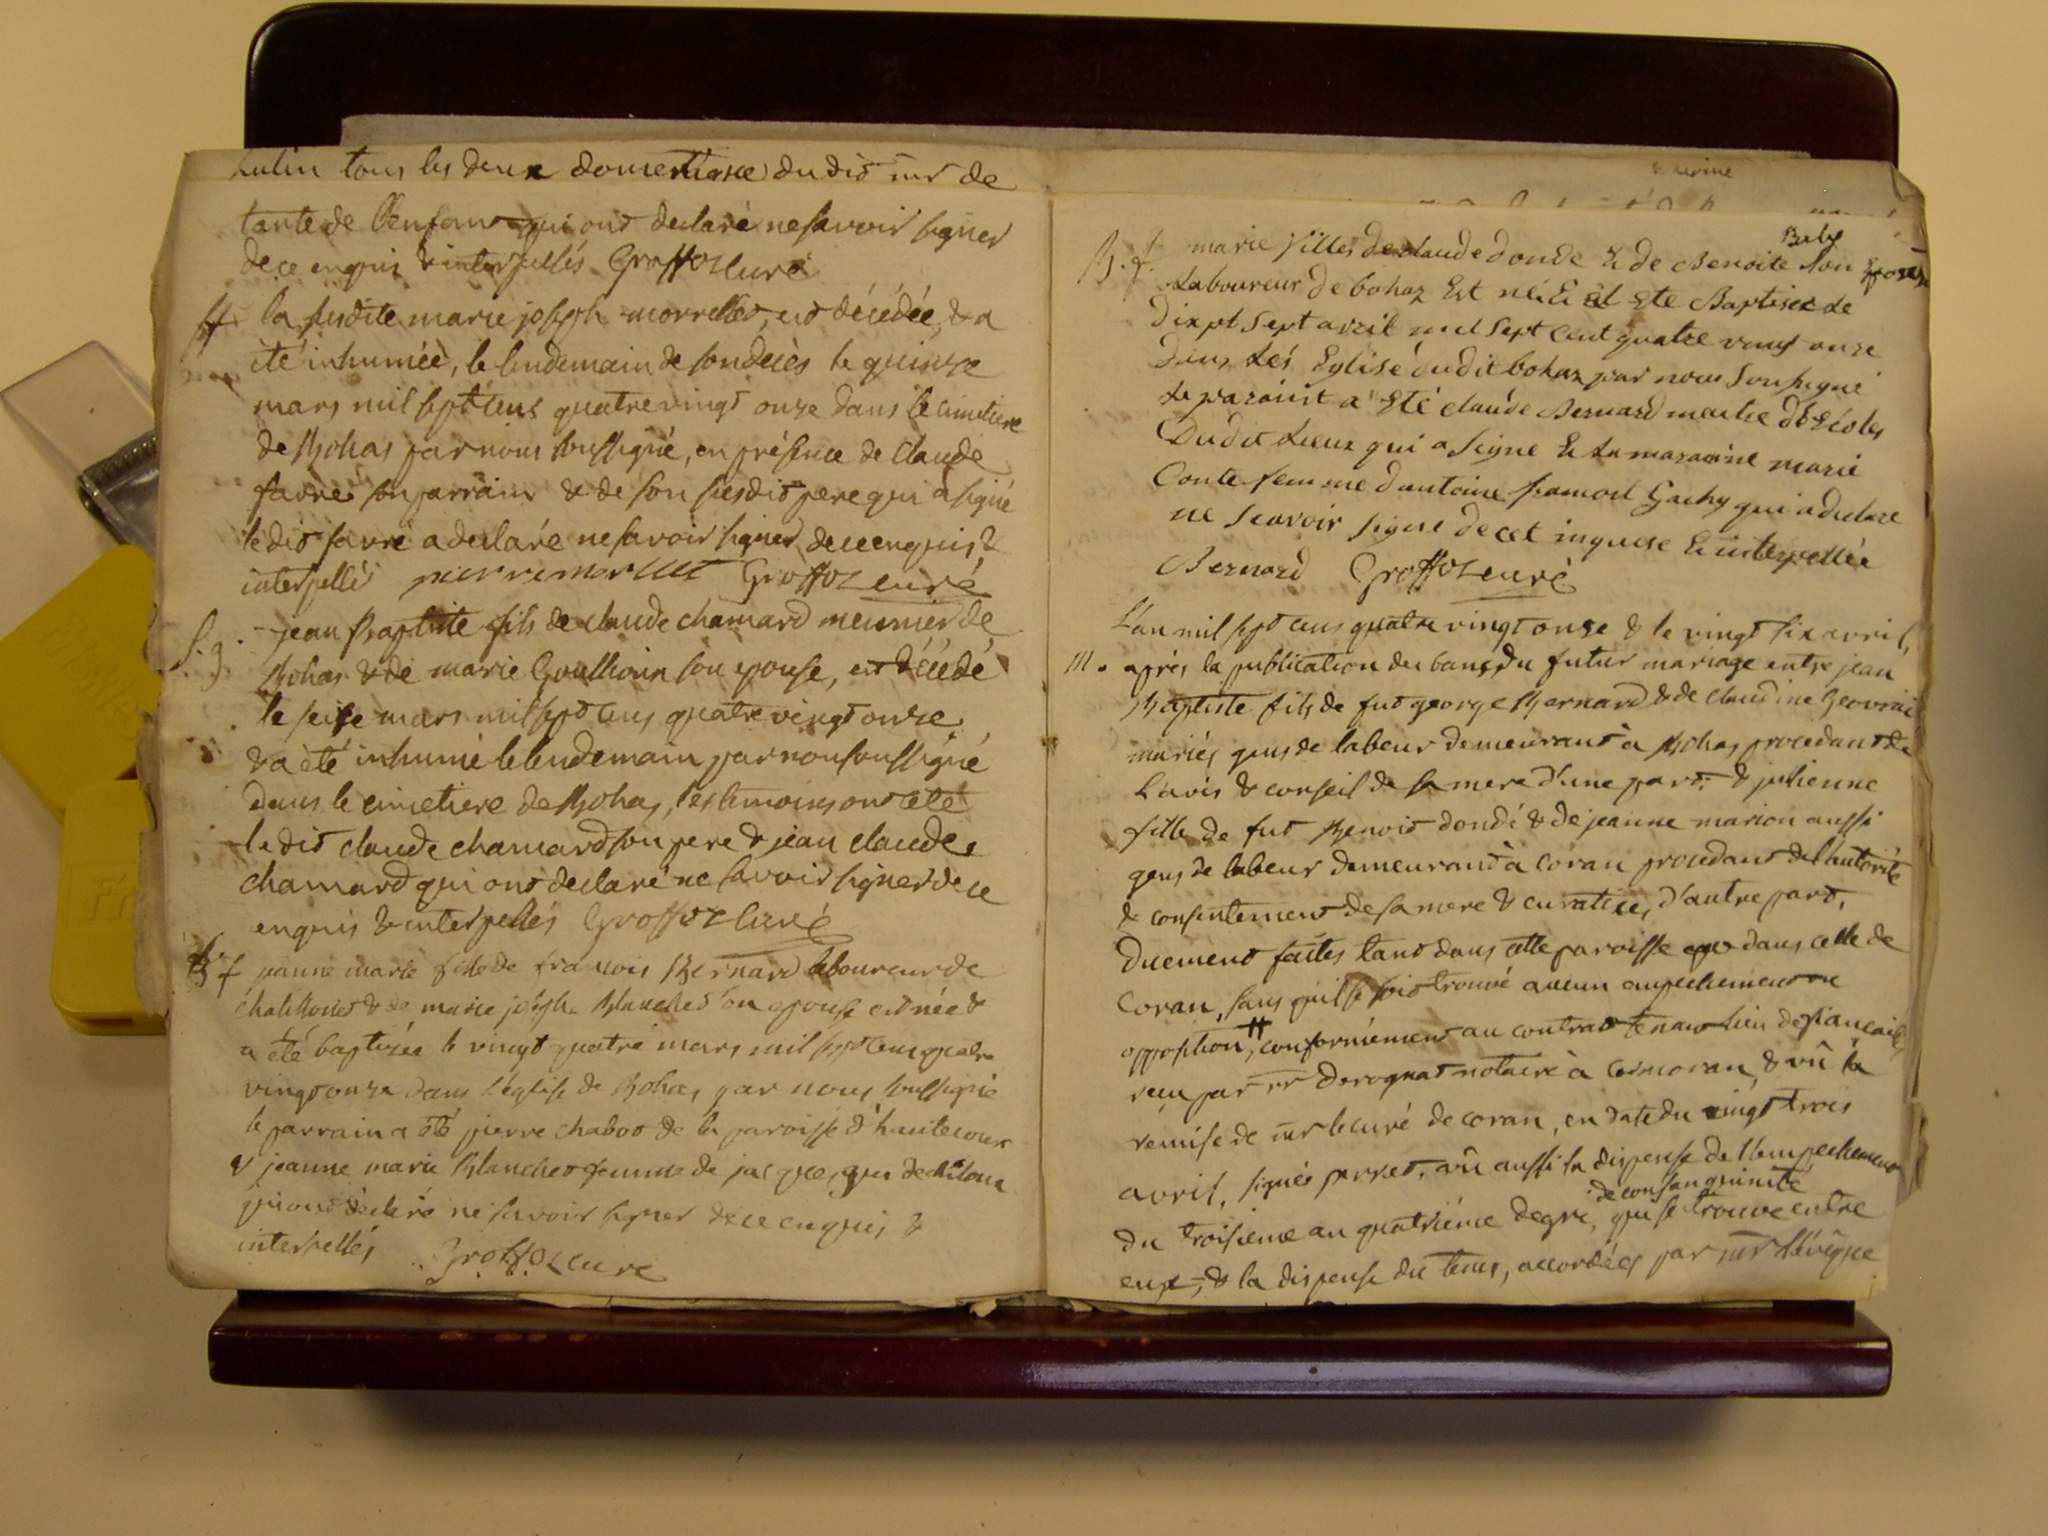 tous les deux domestique du dit mr de
tante de l'enfant qui ont declaré ne savoir signer
de ce enquis & interpellés Groffoz curé
Sf. la susdite marie joseph morrellet, est décédée, & a
été inhumée, le lendemain de son decès le quinze
mars mil sept cens quatre vingt onze dans le cimetiere
de Bohas par nous soussigné, en présence de Claude
favre son parrain & de son susdit pere qui a signé
le dit favre a declaré ne savoir signer de ce enquis &
interpellé pierre morellet Groffoz curé
S. g. jean Baptiste fils de claude chamard meunier de
Bohas & de marie son epouse, est décédé
le seise mars mil sept cens quatre vingt onze
& a été inhumé le lendemain par nous soussigné
dans le cimetiere de Bohas, les temoins ont été
le dit claude chamard son pere & jean claude
chamard qui ont declaré ne savoir signer de ce
enquis & interpellés Groffoz curé
B. f jeanne marie fille de francois Bernard laboureur de
& de marie joseph Blanchet son epouse est née &
a été baptisée le vingt quatre mars mil sept cens quatre
vingt onze dans l'église de Bohas par nous soussigné
le parrain a été pierre chabot de la paroisse d'hautecour
& jeanne marie Blanchet femme de jacque
qui ont déclaré ne savoir signer de ce enquis &
interpellés Groffoz curé
B. f. marie filles de claude donde & de Benoite Bely son Epouse
Laboureur de bohaz Est née & at Ete Baptisez Le
dixpt Sept avril mil Sept cent quatre vingt onze
dans Lés Eglisé dudit bohaz par nous Sousigné
Le paraint a Eté claude Bernard maitre d'Ecoles
Dudit Lieux qui a Signe & La maraine marie
Conte femme d'antoine Gachy qui a declare
ne Scavoir signe de cet inquise & interpellée
Bernard Groffoz curé
L'an mil sept cens quatre vingt onze & le vingt six avril,
m. après la publication des bans du futur mariage entre jean
Baptiste fils de fut george Bernard & de claudine Geovrai
mariés gens de labeur demeurant à Bohas procedant de
l'avis & conseil de sa mere d'une part, & julienne
fille de fut Benoit dondé & de jeanne marion aussi
gens de labeur demeurant à coran procedant de l'autorité
& consentement de sa mere & curatrice, d'autre part,
duement faites tant dans cette paroisse que dans celle de
Coran, sans qu'il se soit trouvé aucun empechement ou
opposition #, conformément au contrat tenant lieu de fiancailles
recu par mr derognat notaire à Cormoran, & vû la
remise de mr le curé de coran, en date du vingt trois
avril, signée perret, vû aussi la dispense de l'empechement
de consanguinité
du troisieme au quatriéme degré, qui se trouve entre
eux, & la dispense du tems, accordées par mr l'évêque